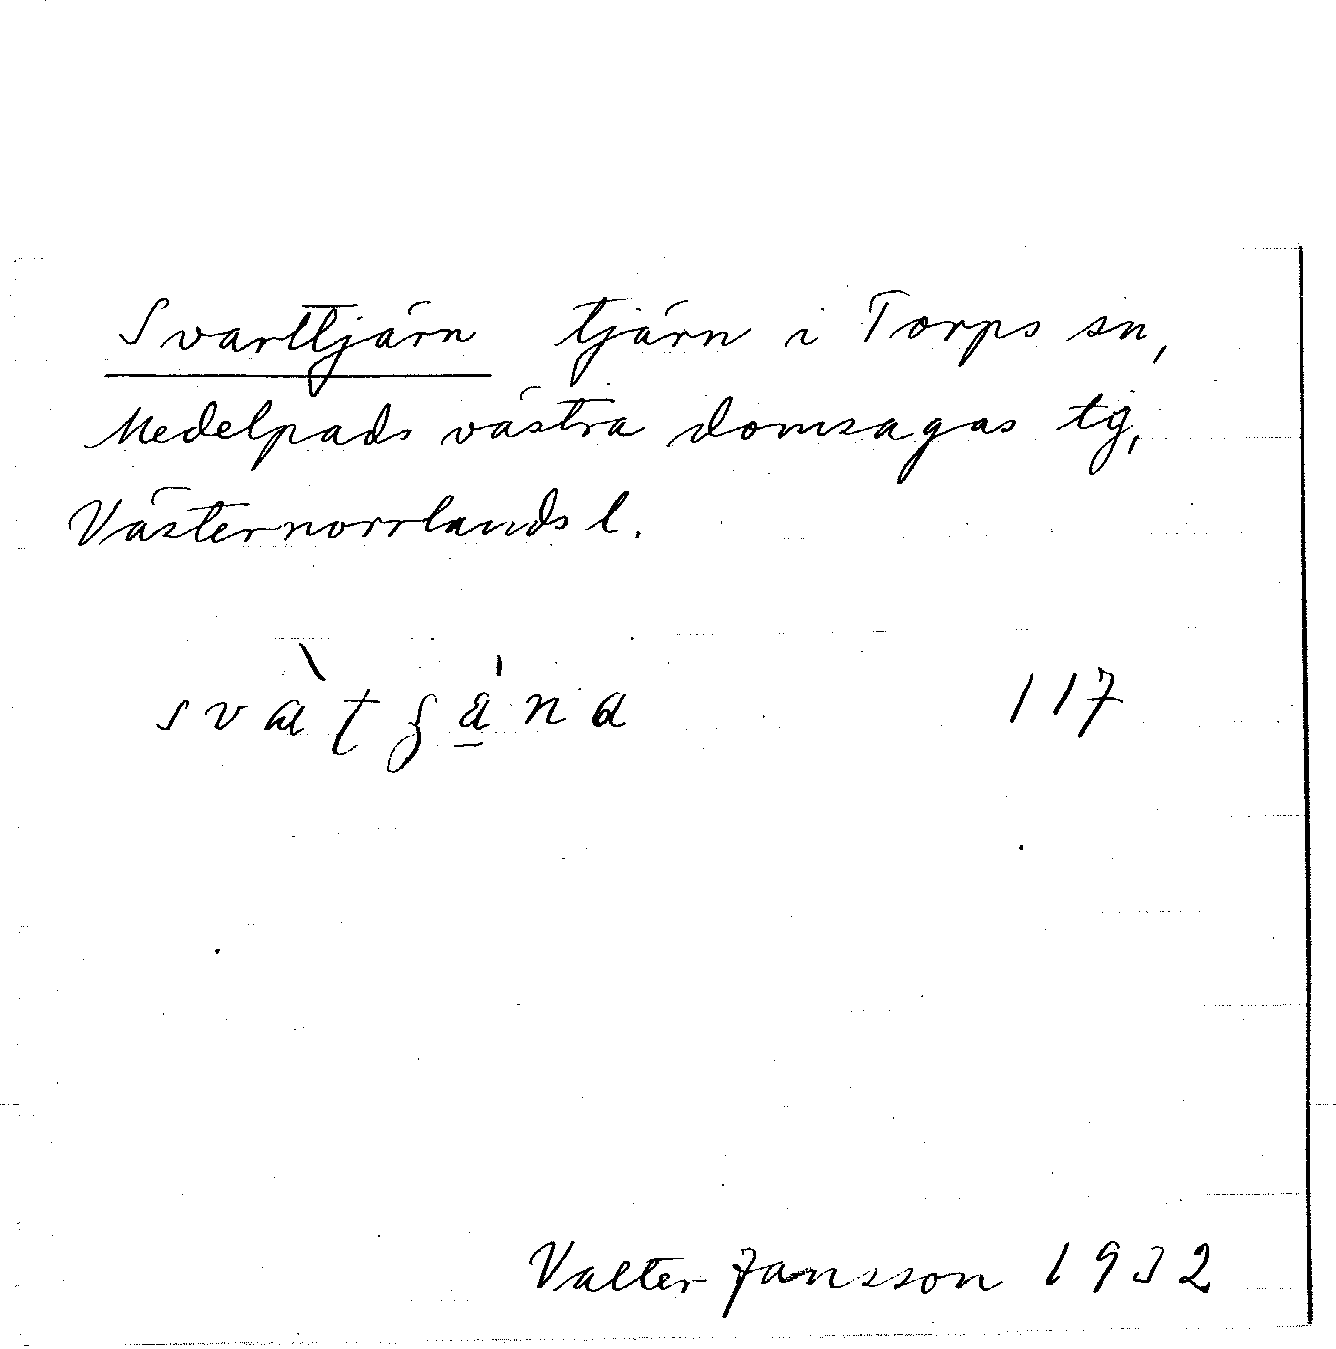 Svarttjärn tjärn i Torps sn,
Medelpads västra domsagas tg,
Västernorrlands l.
117
Valter Jansson 1932